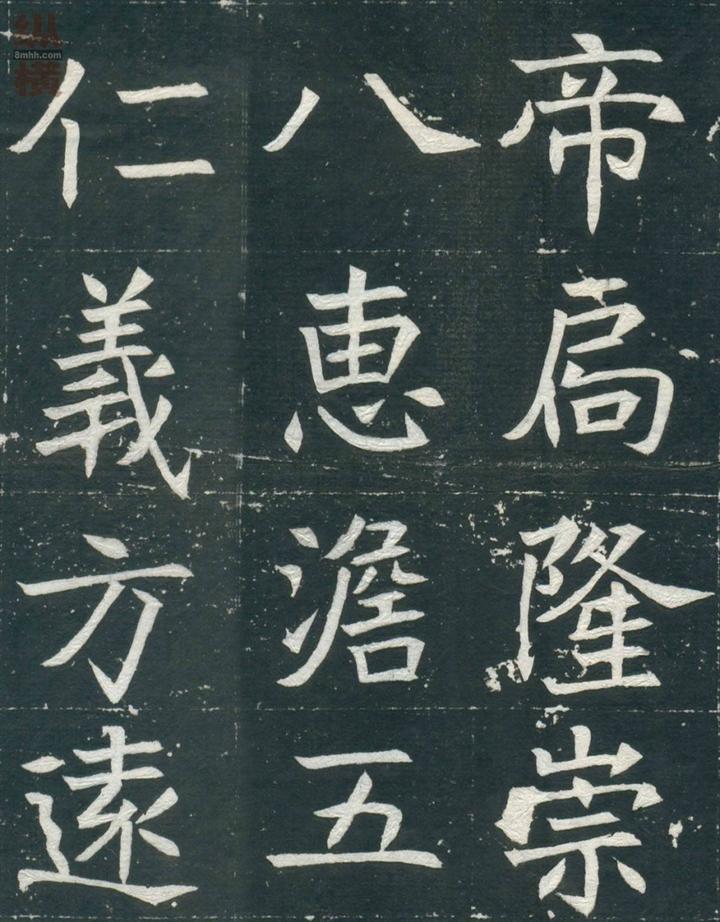 帝扃隆崇
八惠澹五
仁義方遠
纵横
8mhh.com